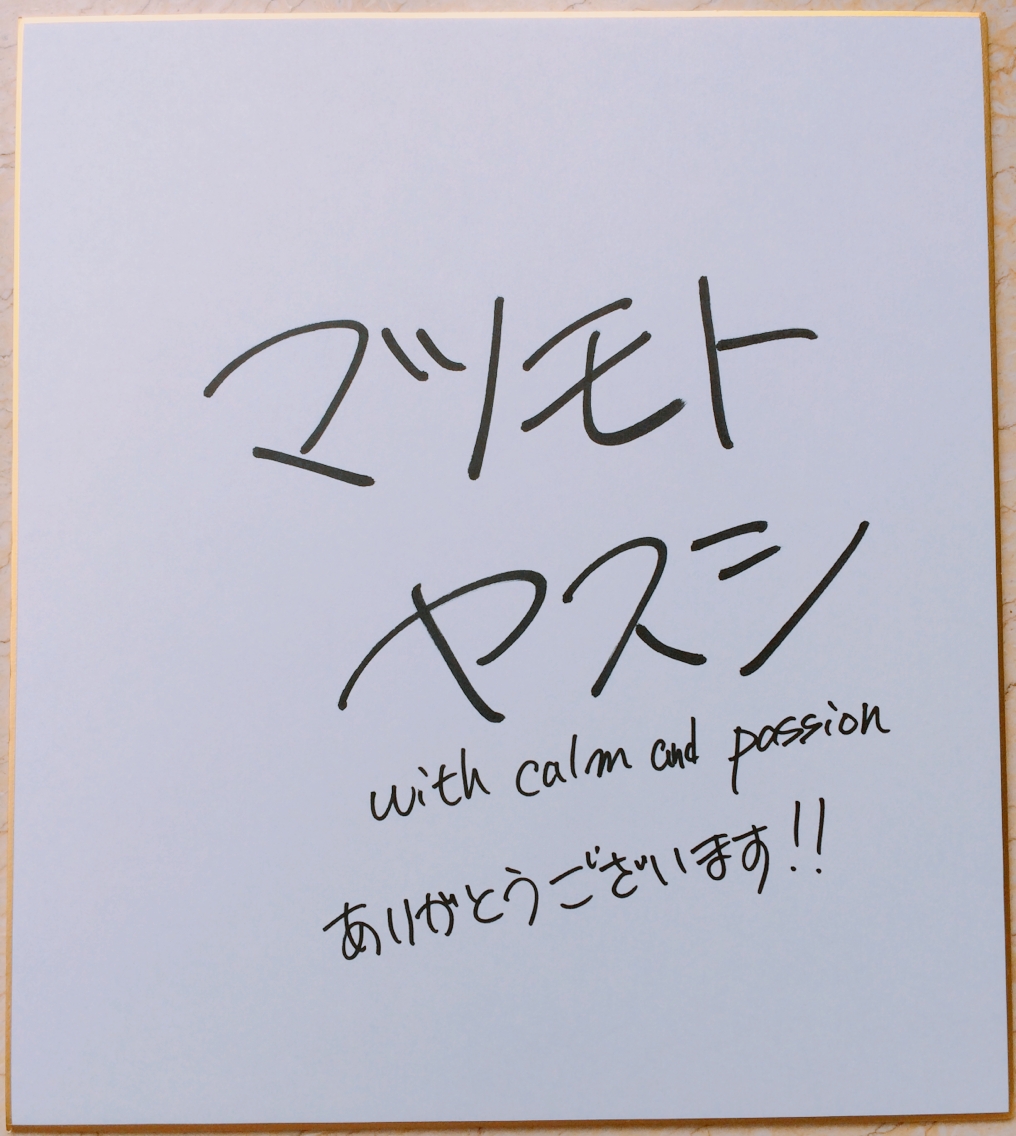 マツモト
ヤスシ
with calm and passion
ありがとうございます!!